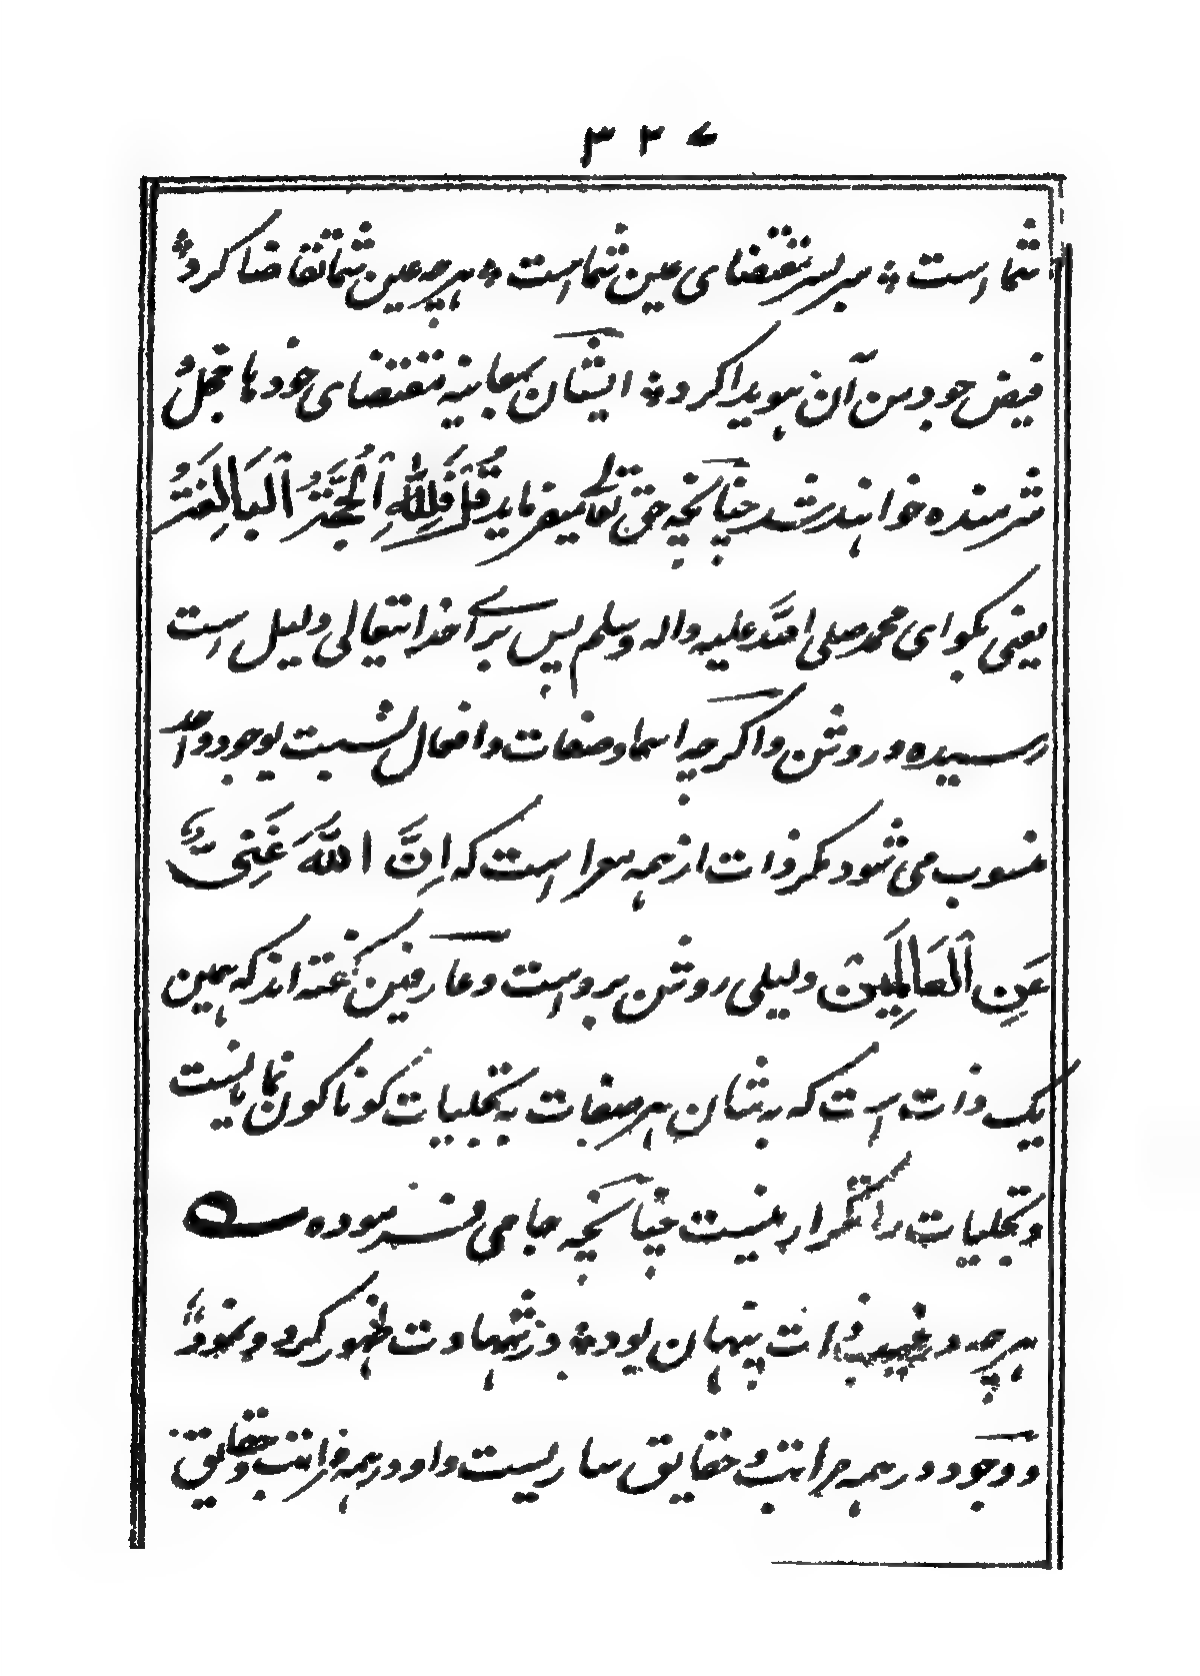 ۳۲۷
شما است ؞ سر بسر مقتضای عین شما است ؞ هرچه عین شما تقاضا کرد ؞
فیض جود من آن هویدا کرد ؞ ایشان بمعاینه مقتضای خودها خجل و
شرمنده خواهند شد چنانچه حق تعالی میفرماید قُلْ فَلِلّٰهِ الْحُجَّةُ الْبَالِغَةُ
یعنی بگو ای محمد صلی الله علیه واله وسلم پس برای خدایتعالی دلیل است
رسیده و روشن واگرچه اسما و صفات و افعال نسبت بوجود واحد
منسوب می شود مگر ذات از همه معرا است که اِنَّ اللّٰهَ غَنِیٌّ
عَنِ الْعَالَمِینَ دلیلی روشن بروست و عارفین گفته اند که همین
یک ذات است که بشان هر صفات به تجلیات گوناگون نمایانست
و تجلیات را تکرار نیست چنانچه جامی فرموده
هرچه در غیب ذات پنهان بود ؞ در شهادت ظهور کرد و نمود ؞
و وجود در همه مراتب و حقایق ساریست و او در همه مراتب و حقایق